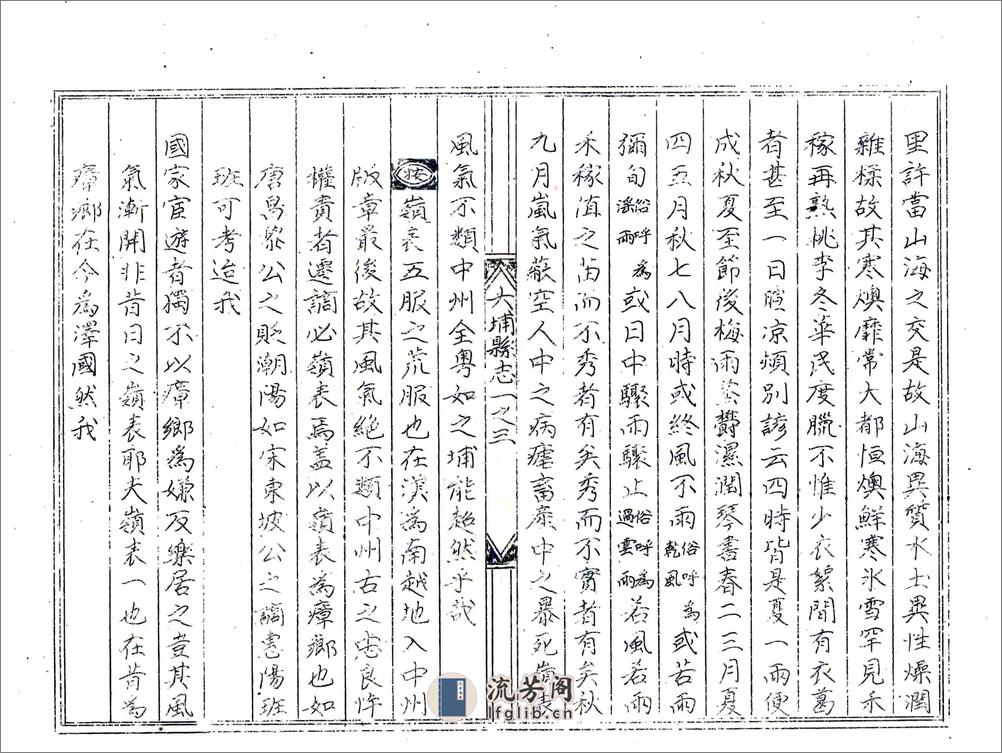 里許當山海之交是故山海異質水土異性燥潤
雜糅故其寒燠靡常大都恒燠鮮寒氷雪罕見禾
稼再熟桃李冬華民度臘不惟少衣絮間有衣葛
者甚至一日暄凉頻別諺云四時皆是夏一雨便
成秋夏至節後梅雨蒸欝濕潤琴書春二三月夏
四五月秋七八月時或終風不雨俗呼為乾風或苦雨
彌旬俗呼為滛雨或日中驟雨驟止俗呼為過雲雨若風若雨
禾稼值之苗而不秀者有矣秀而不實者有矣秋
九月嵐氣蔽空人中之病瘧畜産中之暴死嶺表
大埔縣志 一之三
風氣不類中州全粤如之埔能超然乎哉
按嶺表五服之荒服也在漢為南越地入中州
版章最後故其風氣絶不類中州古之忠良忤
權貴者遷謫必嶺表焉盖以嶺表為瘴鄉也如
唐昌黎公之貶潮陽如宋東坡公之謫惠陽班
班可考迨我
國家宦遊者獨不以瘴鄉為嫌反樂居之豈其風
氣漸開非昔日之嶺表耶夫嶺表一也在昔為
瘴鄉在今為澤國然我
流芳阁
lfglib.cn